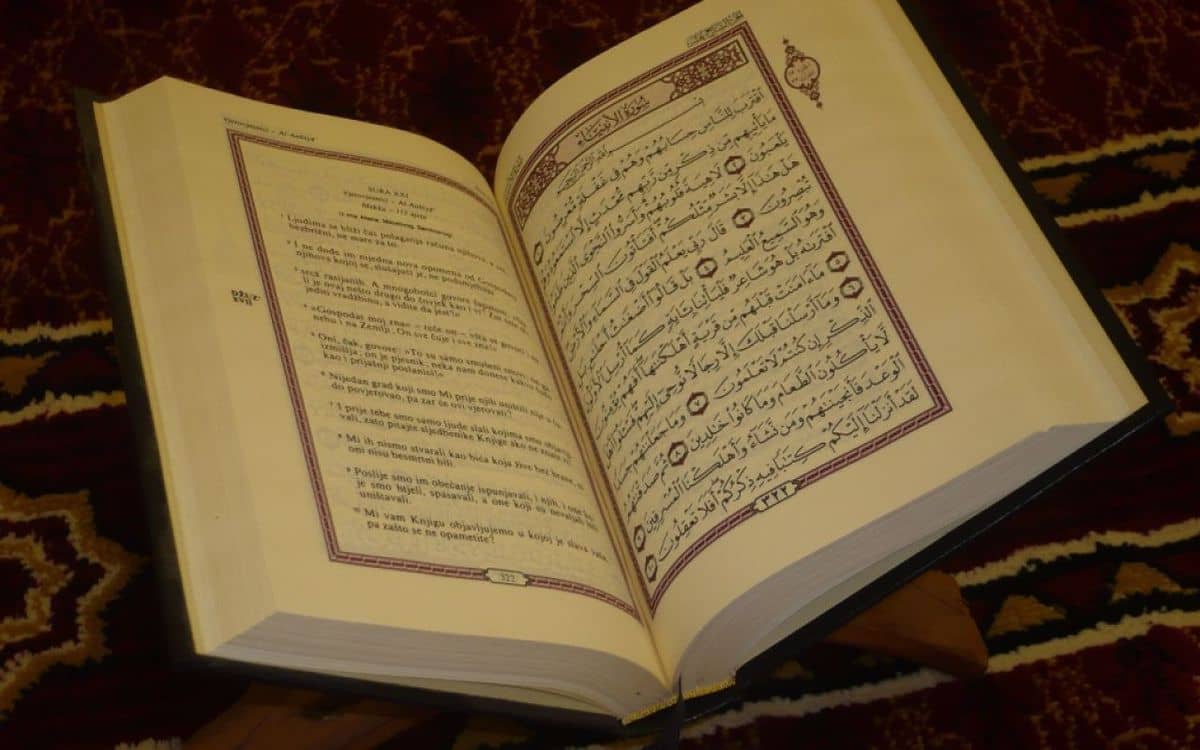 Vjerovjesnici – Al-Anbiyā'
SURA XXI
Vjerovjesnici – Al-Anbiyā'
Mekka – 112 ajeta
U ime Allaha, Milostivog, Samilosnog!
¹ Ljudima se bliži čas polaganja računa njihova, a oni,
bezbrižni, ne mare za to.
² I ne dođe im nijedna nova opomena od Gospodara
njihova kojoj se, slušajući je, ne podsmjehuju
³ srca rasijanih. A mnogobošci govore šapatom:
li je ovaj nešto drugo do čovjek kao i vi? Zar ćete
jediti vradžbinu, a vidite da jest?«
⁴ »Gospodar moj zna« – reče on – »šta se govori i na
nebu i na Zemlji; On sve čuje i sve zna!«
⁵ Oni, čak, govore: »To su samo smušeni snovi;
izmišlja; on je pjesnik; neka nam donese kakvo
kao i prijašnji poslanici!«
⁶ Nijedan grad koji smo Mi prije njih uništili nije
do povjerovao, pa zar će ovi vjerovati?
⁷ I prije tebe smo samo ljude slali kojima smo objavlji-
vali, zato pitajte sljedbenike Knjige ako ne znate
⁸ Mi ih nismo stvarali kao bića koja žive bez hrane, ni
oni nisu besmrtni bili.
⁹ Poslije smo im obećanje ispunjavali, i njih, i one koje
je smo htjeli, spasavali, a one koji su nevaljali bili
uništavali.
¹⁰ Mi vam Knjigu objavljujemo u kojoj je slava vaša,
pa zašto se ne opametite?
DŽUZ'
XVII
322
سورة الأنبياء
بسم الله الرحمن الرحيم
اقترب للناس حسابهم وهم في غفلة معرضون ١
ما يأتيهم من ذكر من ربهم محدث إلا استمعوه
يلعبون ٢ لاهية قلوبهم وأسروا النجوى الذين
هل هذا إلا بشر مثلكم أفتأتون السحر
تبصرون ٣ قال ربي يعلم القول في السماء والأرض
وهو السميع العليم ٤ بل قالوا أضغاث أحلام
افتراه بل هو شاعر فليأتنا بآية كما أرسل الأولون
ما آمنت قبلهم من قرية أهلكناها أفهم
وما أرسلنا قبلك إلا رجالا نوحي إليهم فسئلوا أهل
الذكر إن كنتم لا تعلمون ٧ وما جعلناهم جسدا
لا يأكلون الطعام وما كانوا خالدين ٨ ثم صدقناهم
الوعد فأنجيناهم ومن نشاء وأهلكنا المسرفين ٩
لقد أنزلنا إليكم كتابا فيه ذكركم أفلا تعقلون ١٠
٣٢٢